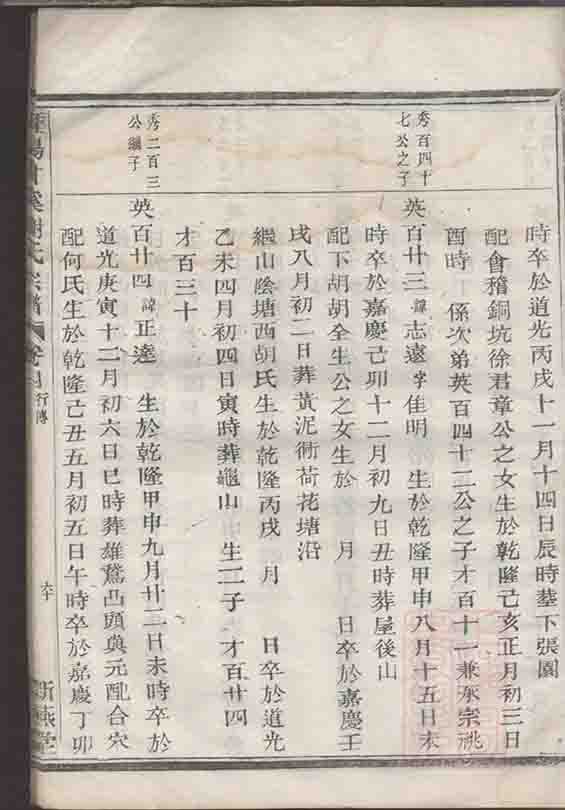 時卒於道光丙戌十一月十四日辰時墓下張園
配會稽銅坑徐君章公之女生於乾隆己亥正月初三日
酉時 係次弟英百四十二公之子才百十一兼承宗祧
秀百四十
七公之子
英百廿三 諱志遠 字佳明 生於乾隆甲申八月十五日未
時卒於嘉慶己卯十二月初九日丑時葬屋後山
配下胡胡全生公之女生於 月 日卒於嘉慶壬
戌八月初二日葬黃泥衕荷花塘沿
繼山陰塘西胡氏生於乾隆丙戌 月 日卒於道光
乙未四月初四日寅時葬龜山 生二子 才百廿四
才百三十
秀二百三
公繼子
英百廿四 諱正達 生於乾隆甲申九月廿二日未時卒於
道光庚寅十二月初六日巳時葬雄鵞凸頭與元配合穴
配何氏生於乾隆己丑五月初五日午時卒於嘉慶丁卯
陽 溪 氏宗譜 卷 行傳
六十